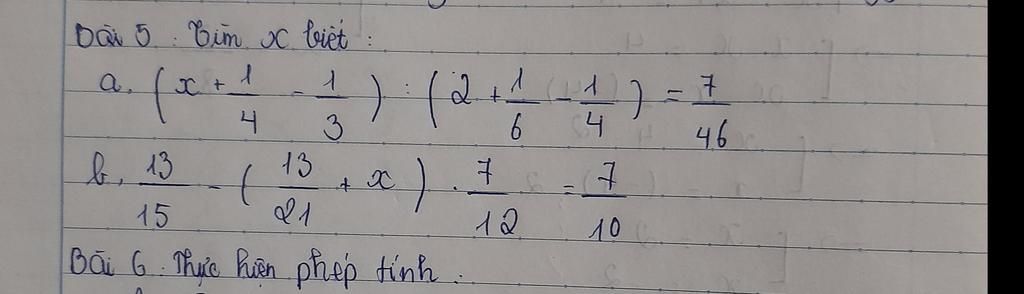 Bài 5 : Tìm x biết :
a. (x + 1/4 - 1/3) : (2 + 1/6 - 1/4) = 7/46
b. 13/15 - (13/21 + x) . 7/12 = 7/10
Bài 6. Thực hiện phép tính :